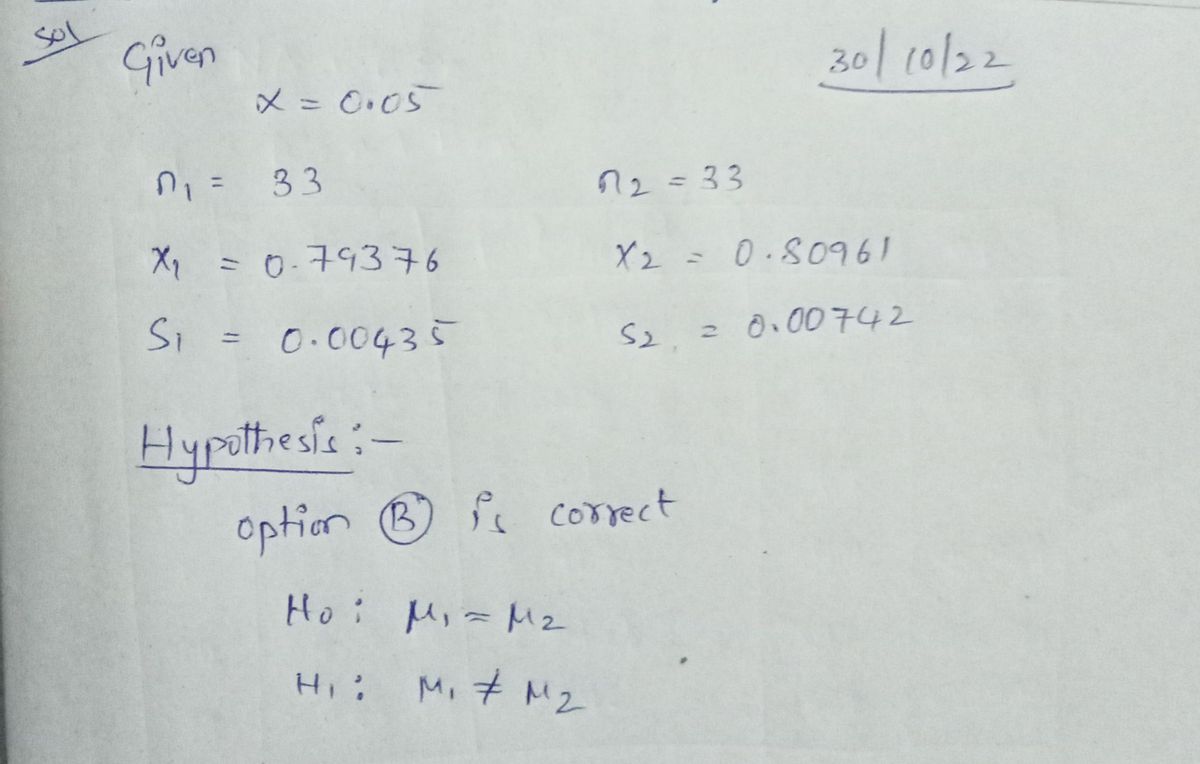 Sol Given 30/10/22
α = 0.05
n₁ = 33 n₂ = 33
X₁ = 0.79376 X₂ = 0.80961
S₁ = 0.00435 S₂ = 0.00742
Hypothesis :-
option Ⓑ is correct
H₀ : μ₁ = μ₂
H₁ : μ₁ ≠ μ₂